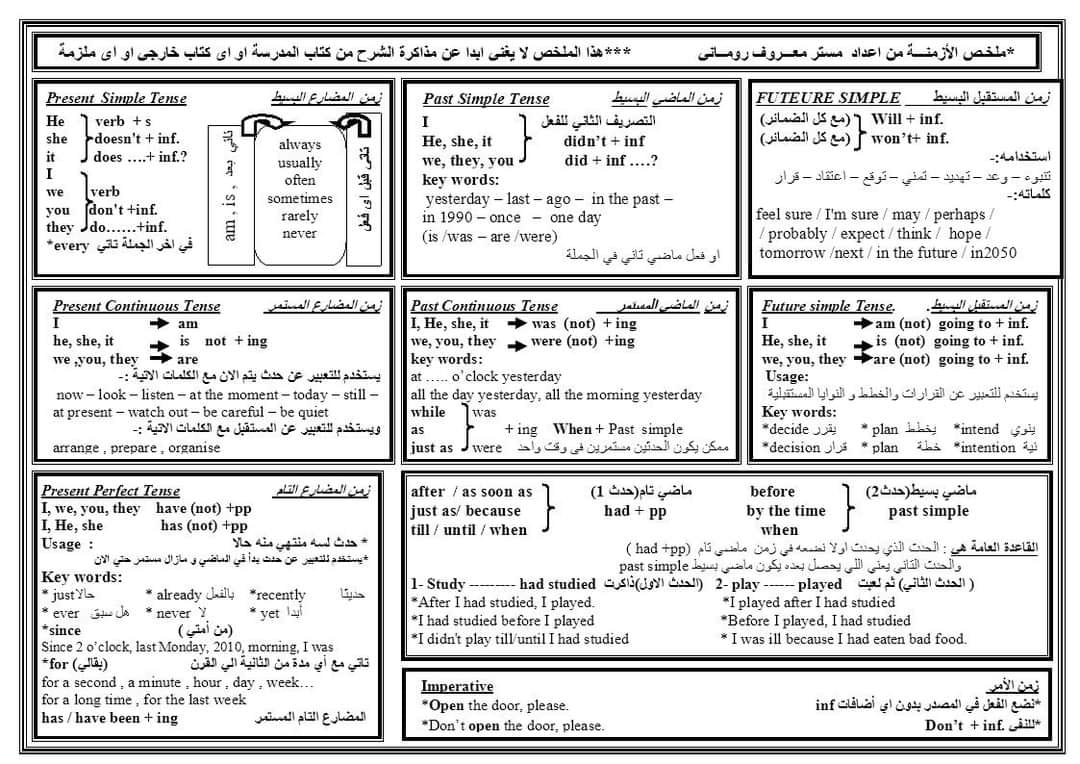 *ملخص الأزمنـــة من اعداد مستر معـــروف رومـــانى ***هذا الملخص لا يغنى ابدا عن مذاكرة الشرح من كتاب المدرسة او اى كتاب خارجى او اى ملزمة
Present Simple Tense زمن المضارع البسيط
He verb + s
she doesn't + inf.
it does ….+ inf.?
I
we verb
you don't +inf.
they do……+inf.
*every في اخر الجملة تاتي
am , is , تاتي بعد
always
usually
often
sometimes
rarely
never
تاتى قبل اى فعل
Past Simple Tense زمن الماضي البسيط
I التصريف الثاني للفعل
He, she, it didn't + inf
we, they, you did + inf ….?
key words:
yesterday – last – ago – in the past –
in 1990 – once – one day
(is /was – are /were)
او فعل ماضي تاني في الجملة
FUTEURE SIMPLE زمن المستقبل البسيط
(مع كل الضمائر) Will + inf.
(مع كل الضمائر) won't+ inf.
استخدامه:-
تنبوء – وعد – تهديد – تمني – توقع – اعتقاد – قرار
كلماته:-
feel sure / I'm sure / may / perhaps /
/ probably / expect / think / hope /
tomorrow /next / in the future / in2050
Present Continuous Tense زمن المضارع المستمر
I am
he, she, it is not + ing
we ,you, they are
يستخدم للتعبير عن حدث يتم الان مع الكلمات الاتية :-
now – look – listen – at the moment – today – still –
at present – watch out – be careful – be quiet
ويستخدم للتعبير عن المستقبل مع الكلمات الاتية :-
arrange , prepare , organise
Past Continuous Tense زمن الماضي المستمر
I, He, she, it was (not) + ing
we, you, they were (not) +ing
key words:
at ….. o'clock yesterday
all the day yesterday, all the morning yesterday
while was
as + ing When + Past simple
just as were ممكن يكون الحدثين مستمرين في وقت واحد
Future simple Tense. زمن المستقبل البسيط.
I am (not) going to + inf.
He, she, it is (not) going to + inf.
we, you, they are (not) going to + inf.
Usage:
يستخدم للتعبير عن القرارات والخطط و النوايا المستقبلية
Key words:
*decide يقرر * plan يخطط *intend ينوي
*decision قرار * plan خطة *intention نية
Present Perfect Tense زمن المضارع التام
I, we, you, they have (not) +pp
I, He, she has (not) +pp
Usage : * حدث لسه منتهي منه حالا
*يستخدم للتعبير عن حدث بدأ في الماضي و مازال مستمر حتي الان
Key words:
* just حالا * already بالفعل *recently حديثا
* ever هل سبق * never لا * yet أبدا
*since (من أمتي)
Since 2 o'clock, last Monday, 2010, morning, I was
*for (بقالي) تاتي مع أي مدة من الثانية الي القرن
for a second , a minute , hour , day , week…
for a long time , for the last week
has / have been + ing المضارع التام المستمر
after / as soon as ماضي تام(حدث 1) before ماضي بسيط(حدث2)
just as/ because had + pp by the time past simple
till / until / when when
القاعدة العامة هي : الحدث الذي يحدث اولا نضعه في زمن ماضي تام ( had +pp)
والحدث التاني يعني اللي يحصل بعده يكون ماضي بسيط past simple
1- Study --------- had studied ذاكرت(الحدث الاول) 2- play ------ played ثم لعبت (الحدث الثاني )
*After I had studied, I played. *I played after I had studied
*I had studied before I played *Before I played, I had studied
*I didn't play till/until I had studied * I was ill because I had eaten bad food.
Imperative زمن الأمر
*Open the door, please. *نضع الفعل في المصدر بدون اي أضافات inf
*Don't open the door, please. *للنفى Don't + inf.